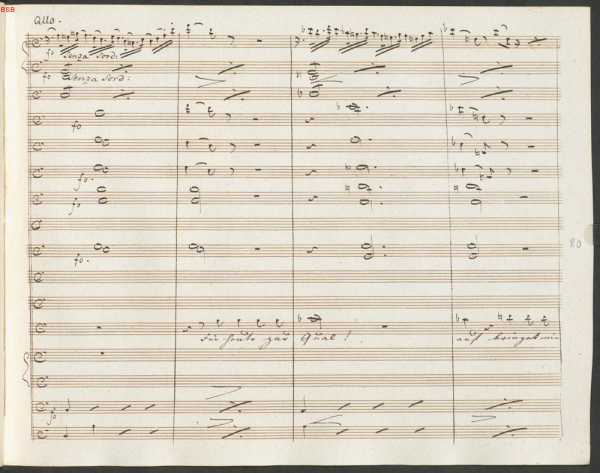 BSB
Allo.
fo
Senza Sord:
fo Senza Sord:
fo
fo.
fo
fo.
80
zur Qual!
auf bringet mir
fo